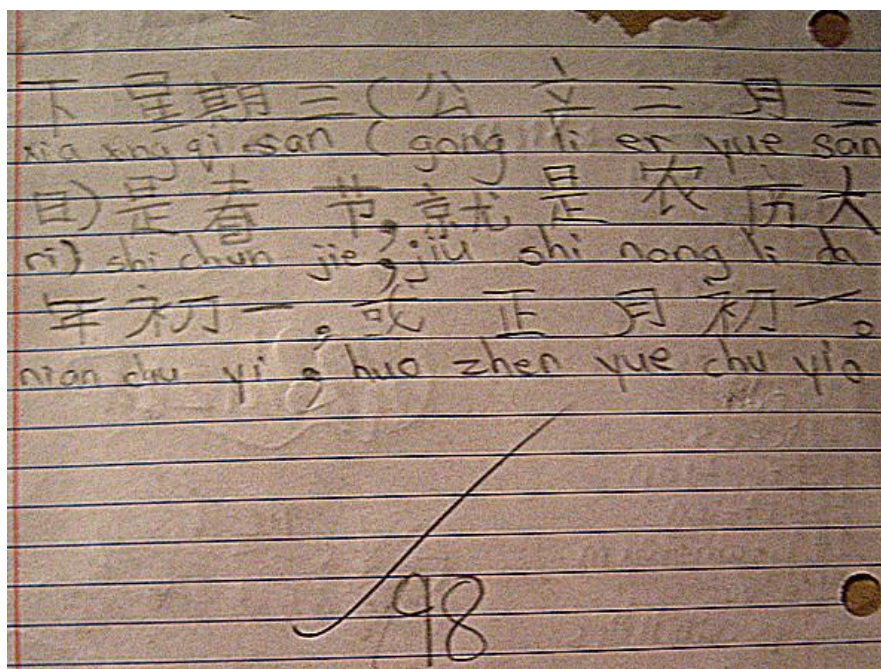 下星期三(公立二月三
xia xing qi san (gong li er yue san
日)是春节,就是农历大
ri) shi chun jie, jiu shi nong li da
年初一,或正月初一。
nian chu yi, huo zhen yue chu yi。
98